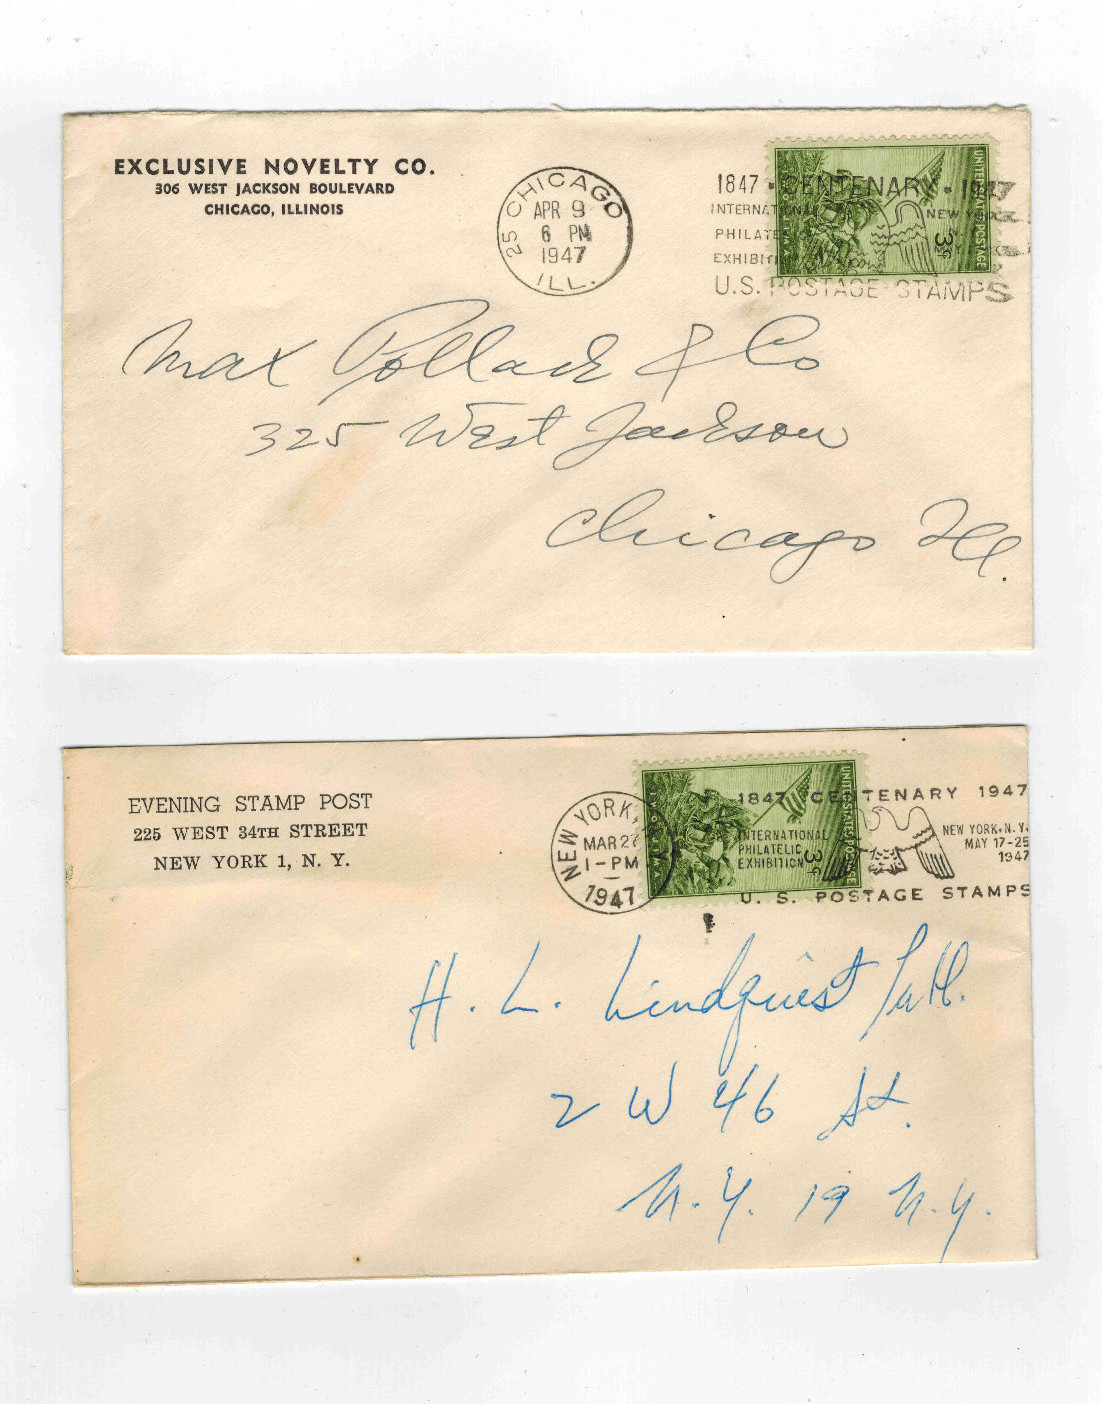 EXCLUSIVE NOVELTY CO.
306 WEST JACKSON BOULEVARD
CHICAGO, ILLINOIS
25 CHICAGO
APR 9
6 PM
1947
ILL.
1847 • CENTENARY • 1947
INTERNATIONAL
PHILATELIC
EXHIBITION
NEW YORK
U.S. POSTAGE STAMPS
UNITED STATES POSTAGE
3¢
Max Pollack & Co
325 West Jackson
Chicago Ill.
EVENING STAMP POST
225 WEST 34TH STREET
NEW YORK 1, N. Y.
NEW YORK, N.Y.
MAR 27
1-PM
1947
1847 CENTENARY 1947
INTERNATIONAL
PHILATELIC
EXHIBITION
NEW YORK, N.Y.
MAY 17-25
1947
U. S. POSTAGE STAMPS
UNITED STATES POSTAGE
3¢
H. L. Lindquist Publ.
2 W 46 St.
N.Y. 19 N.Y.